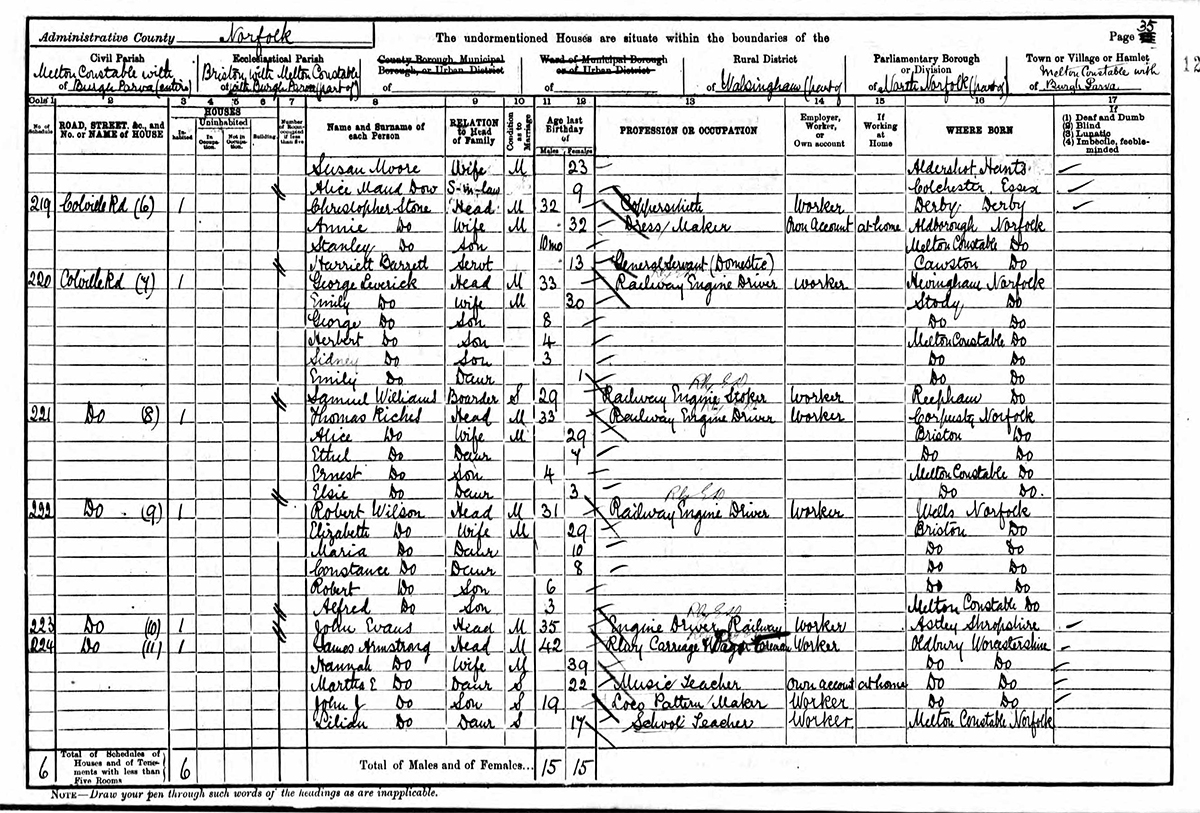 Administrative County Norfolk The undermentioned Houses are situate within the boundaries of the Page 35
Civil Parish Ecclesiastical Parish County Borough, Municipal Borough, or Urban District Ward of Municipal Borough or of Urban District Rural District Parliamentary Borough or Division Town or Village or Hamlet
of Melton Constable with Burgh Parva (entire) of Briston with Melton Constable with Burgh Parva (part of) of of of Walsingham (part of) of North Norfolk (part of) of Melton Constable with Burgh Parva
12
Cols 1 2 3 4 5 6 7 8 9 10 11 12 13 14 15 16 17
No. of Schedule ROAD, STREET, &c., and No. or NAME of HOUSE HOUSES Inhabited Uninhabited In Occupation Not in Occupation Building Number of Rooms occupied if less than five Name and Surname of each Person RELATION to Head of Family Condition as to Marriage Age last Birthday of Males Females PROFESSION OR OCCUPATION Employer, Worker, or Own account If Working at Home WHERE BORN If (1) Deaf and Dumb (2) Blind (3) Lunatic (4) Imbecile, feeble-minded
Susan Moore Wife M 23 Aldershot Hants
Alice Maud Dow S-in-law 9 Colchester Essex
219 Colville Rd (6) 1 Christopher Stone Head M 32 Coppersmith Worker Derby Derby
Annie Do Wife M 32 Dress Maker Own Account at home Aldborough Norfolk
Stanley Do Son 10mo Melton Constable Do
Harriett Barrett Servt 13 General Servant (Domestic) Cawston Do
220 Colville Rd (7) 1 George Leverick Head M 33 Railway Engine Driver Worker Hevingham Norfolk
Emily Do Wife M 30 Stody Do
George Do Son 8 Do Do
Herbert Do Son 4 Melton Constable Do
Sidney Do Son 3 Do Do
Emily Do Daur 1 Do Do
Samuel Williams Boarder S 29 Railway Engine Stoker Worker Reepham Do
221 Do (8) 1 Thomas Riches Head M 33 Railway Engine Driver Worker Corpusty Norfolk
Alice Do Wife M 29 Briston Do
Ethel Do Daur 7 Do Do
Ernest Do Son 4 Melton Constable Do
Elsie Do Daur 3 Do Do.
222 Do (9) 1 Robert Wilson Head M 31 Railway Engine Driver Worker Wells Norfolk
Elizabeth Do Wife M 29 Briston Do
Maria Do Daur 10 Do Do
Constance Do Daur 8 Do Do
Robert Do Son 6 Do Do
Alfred Do Son 3 Melton Constable Do
223 Do (10) 1 John Evans Head M 35 Engine Driver Railway Worker Astley Shropshire
224 Do (11) 1 James Armstrong Head M 42 Rlwy Carriage & Wagon Foreman Worker Oldbury Worcestershire
Hannah Do Wife M 39 Do Do
Martha E Do Daur S 22 Music Teacher Own account at home Do Do
John J Do Son S 19 Loco Pattern Maker Worker Do Do
Lilian Do Daur S 17 School Teacher Worker Melton Constable Norfolk
6 Total of Schedules of Houses and of Tenements with less than Five Rooms 6 Total of Males and of Females... 15 15
NOTE—Draw your pen through such words of the headings as are inapplicable.